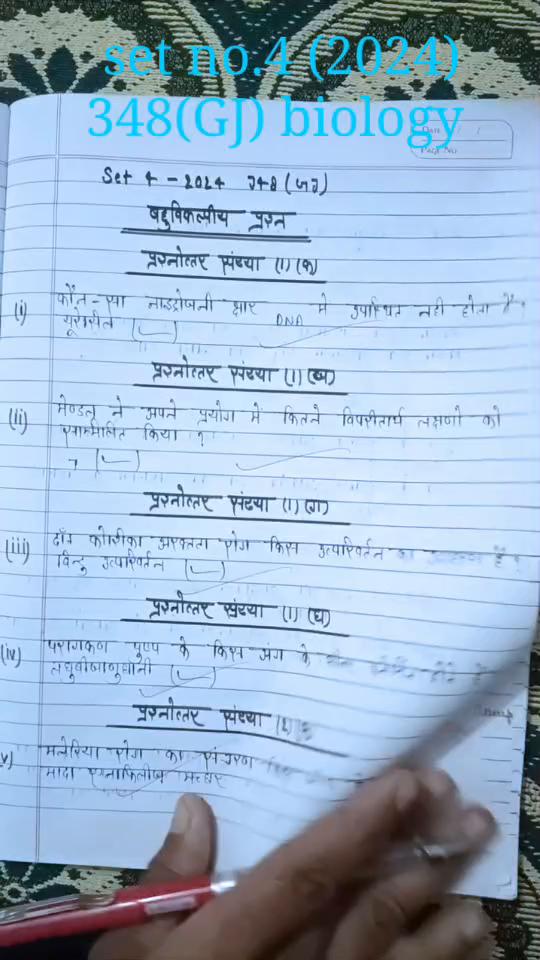 set no.4 (2024)
348(GJ) biology
Date / /
Page No.
Set 4 - 2024 348 (जज)
बहुविकल्पीय प्रश्न
प्रश्नोत्तर संख्या (1) (क)
(i) कौन-सा नाइट्रोजनी क्षार DNA में उपस्थित नही होता है?
यूरेसील (✓)
प्रश्नोत्तर संख्या (1) (ख)
(ii) मेण्डल ने अपने प्रयोग में कितने विपरीतार्थ लक्षणो को
सम्मिलित किया ?
7 (✓)
प्रश्नोत्तर संख्या (1) (ग)
(iii) दाँत्र कोशिका अरक्तता रोग किस उत्परिवर्तन का है?
बिन्दु उत्परिवर्तन (✓)
प्रश्नोत्तर संख्या (1) (घ)
(iv) परागकण पुष्प के किस अंग के
लघुबीजाणुधानी (✓)
प्रश्नोत्तर संख्या (1)
v) मलेरिया रोग का संचरण
मादा एनाफिलीज मच्छर